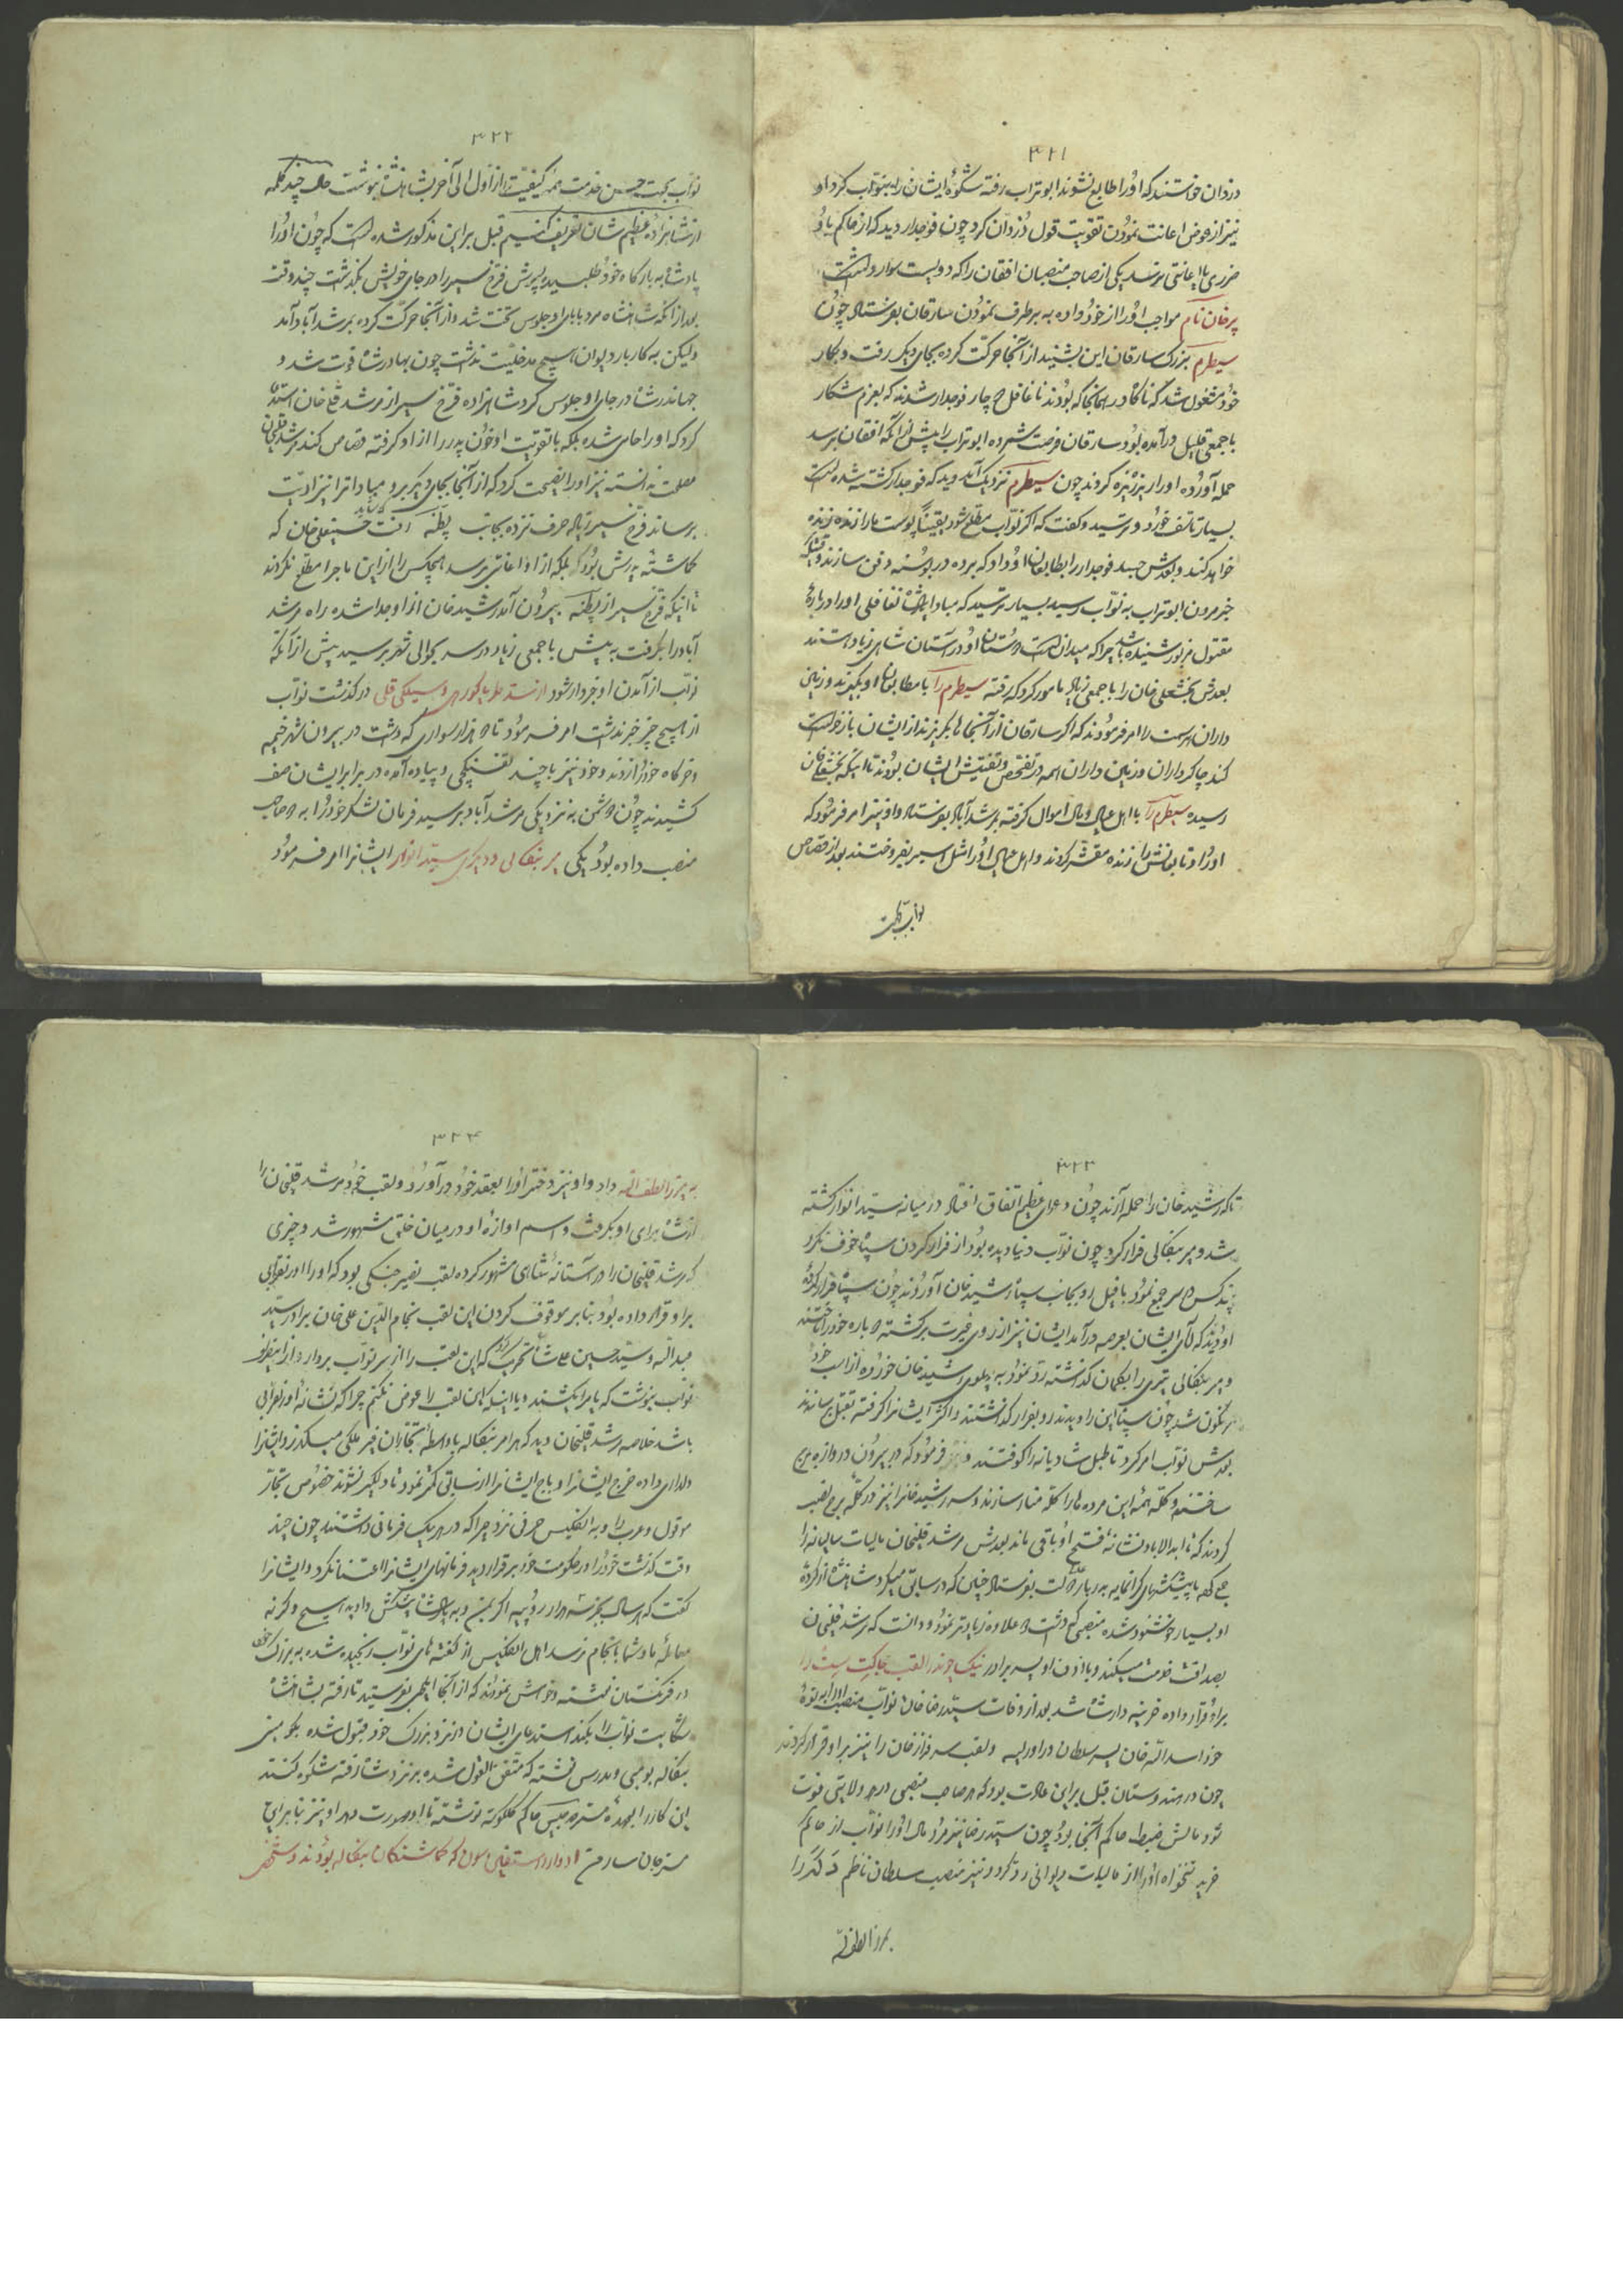 ۳۲۱
دزدان خواستند که او را طابع نشوند ابوتراب رفته شکوهٔ ایشان را به نواب کرد او
نیز از عوض اعانت نمودن تقویت قول دزدان کرد چون فوجدار دید که از حاکم باو
ضرری یا اعانتی نرسد یکی از صاحب منصبان افغان را که دویست سوار داشت
پرخان نام مواجب او را از خود داده به برطرف نمودن سارقان بفرستاد چون
سیطرم بزرگ سارقان این بشنید از آنجا حرکت کرده بجای دیگر رفت و بکار
خود مشغول شد که ناگاه در همانجا که بودند تا غافل چار فوجدار شدند که بعزم شکار
با جمعی قلیل درآمده بود سارقان فرصت شمرده ابوتراب را پیش از آنکه افغان برسد
حمله آورده او را ریزریزه کردند چون سیطرم نزدیک آمد دید که فوجدار کشته شده است
بسیار تاسف خورد و ترسید و گفت که اگر نواب مطلع شود یقیناً پوست ما را زنده زنده
خواهد کند و بعدش جسد فوجدار را بطابعان او داد که برده در بوسنه دفن سازند وقتیکه
خبر مردن ابوتراب به نواب رسید بسیار ترسید که مبادا پادشاه تغافلی او را دربارهٔ
مقتول مزبور شنیده باشد چرا که میدانست دوستان او در آستان شاهی زیاد هستند
بعدش بخشعلی خان را با جمعی زیاد مامور کرد که رفته سیطرم را با مطابعان او بگیرند و زمین
داران سمت را امر فرمودند که اگر سارقان از آنجاها بگریزند از ایشان بازخواست
کند چاکرداران و زمین داران همه در تفحص و تفتیش ایشان بودند تا اینکه بخشعلی خان
رسیده سیطرم را با اهل عیال و مال اموال گرفته بمرشدآباد بفرستاد و او نیز امر فرمود که
او را و تابعانش را زنده مقشر کردند و اهل عیال او را مثل اسیر بفروختند بعد از قصاص
نواب بجهت
۳۲۲
نواب بجهت حسن خدمت همه کیفیت را از اول الی آخر بشاهنشاه نوشت حال چند کلمه
از شاهزاده عظیم شان تعریف کنیم قبل بر این مذکور شده است که چون او را
پادشاه به بارگاه خود طلبید پسرش فرخ سیر را در جای خویش بگذاشت چند وقت
بعد از آنکه شاهنشاه مرد بابای او جلوس تخت شد و از آنجا حرکت کرده بمرشدآباد آمد
ولیکن به کاربار دیوان هیچ مدخلیت نداشت چون بهادرشاه فوت شد و
جهاندرشاه در جای او جلوس کرد شاهزاده فرخ سیر از مرشد قلی خان استدعا
کرد که او را حامی شده بلکه با تقویت او خون پدر را از او گرفته قصاص کند مرشد قلیخان
مصلحت ندانسته نیز او را نصیحت کرد که از آنجا بجای دیگر برو مبادا ترا نیز اذیت
برساند فرخ سیر زیاد حرف نزده بجانب پطنه رفت حسینعلی خان که
گماشته پدرش بود که شاید بلکه از او اعانتی برسد هیچکس را از این ماجرا مطلع نکردند
تا اینکه فرخ سیر از پطنه بیرون آمد رشید خان از او جدا شده راه مرشد
آباد را گرفت به پیش با جمعی زیاد در سر حوالی شهر برسید پیش از آنکه
نواب از آمدن او خبردار شود از سد طریاکورهی و سیکلی قلی درگذشت نواب
از هیچ چیز خبر نداشت امر فرمود تا دو هزار سواری که داشت در بیرون شهر خیمه
و خرگاه خود را زدند و خود نیز با چند تفنگچی و پیاده آمده در برابر ایشان صف
کشیدند چون دشمن به نزدیکی مرشدآباد برسید فرمان لشکر خود را به دو صاحب
منصب داده بود یکی میر بنگالی و دیگری سید انوار ایشانرا امر فرمود
۳۲۳
تا که رشید خان را حمله آرند چون دعوای عظیم اتفاق افتاد در میانه سید انوار کشته
شد و میر بنگالی فرار کرد چون نواب دنیا دیده بود از فرار کردن سپاه خوف نکرد
چند کس در سر جمع نمود با فیل رو بجانب سپاه رشید خان آوردند چون سپاه فرار کرده
او دیدند که آقای ایشان بعرصه درآمد ایشان نیز از روی غیرت برگشته دوباره خود را تاختند
و میر بنگالی تیری را بکمان گذاشته رد نمود به پهلوی رشید خان خورده از اسب خود
سرنگون شد چون سپاه این را دیدند رو بفرار گذاشتند و اکثر ایشانرا گرفته بقتل برساندند
بعدش نواب امر کرد تا طبل شادیانه را کوفتند و نیز فرمود که در بیرون دروازه برج
ساختند و کله همه این مرده ها را کله منار سازند و سر رشید خانرا نیز در کله برج نصب
کردند که تا ابد الاباد نشانهٔ فتح او باقی ماند بعدش مرشد قلیخان مالیات سالیانه را
جمع کرده با پیشکشهای گرانمایه به دربار دولت بفرستاد چنانی که در سابق میکرد شاهنشاه از کردهٔ
او بسیار خوشنود شده منصبی که داشت علاوه زیادتر نمود و دانست که مرشد قلیخان
بصداقت خدمت میکند و با اذن او پسر برادر نیک چوند را لقب جاگت سیت را
براو قرار داده خزینه دار شاه شد بعد از وفات سید رضا خان نواب منصب او را به نوهٔ
خود اسدالله خان پسر سلطان دراورسه و لقب سرفراز خان را نیز بر او قرار کردند
چون در هندوستان قبل بر این عادت بود که هر صاحب منصبی در هر ولایتی فوت
شود مالش ضبط حاکم آنجا بود چون سید رضا نیز مرد مال او را نواب از حاکم
خرید تنخواه او را از مالیات دیوانی رد کرد و نیز منصب سلطان ناظم دگر را
بمیرزا لطف الله
۳۲۴
به میرزا لطف الله داد و او نیز دختر او را بعقد خود درآورد و لقب خود مرشد قلیخان را
از شاه برای او بگرفت و اسم آوازهٔ او در میان خلق مشهور شد و چیزی
که مرشد قلیخان را در آستانهٔ شاهی مشهور کرده لقب نصیر جنگی بود که او را اورنغزایی
بر او قرار داده بود بنابر موقوف کردن این لقب نجام الدین علی خان برادر سید
عبدالله و سید حسین علی شاه تحریک کرد که این لقب را از سر نواب بردارد از اینطرف
نواب بنوشت که یا مرا بکشند و یا اینکه این لقب را عوض نکنم چرا که نشانهٔ اورنغزایی
باشد خلاصه مرشد قلیخان دید که هر امر بنگاله باواسطهٔ تجاران غیر ملکی میگذرد ایشانرا
دلداری داده خرج ایشانرا و باج ایشانرا از سابق کمتر نمود تا دلگیر نشوند خصوص تجار
موقول و عرب را و به انگلیس حرفی نزد چرا که در هر یک فرمانی داشتند چون چند
وقت گذشت خود را در حکومت خود برقرار دید فرمانهای ایشانرا اعتنا نکرد و ایشانرا
گفت که هر سال بجز سه هزار روپیه اگر بمن و به پادشاه پیشکش دادید هیچ و گرنه
معاملهٔ ما و شما بانجام نرسد اهل انگلیس از گفته های نواب رنجیده شده به بزرگ خود
در فرنگستان نوشته و خواهش نمودند که از آنجا ایلچی بفرستید تا رفته بشاهنشاه
شکایت نواب را بکند استدعای ایشان در نزد بزرگ خود قبول شده بحکومتی
بنگاله بومبی و مدرس نوشته که متفق القول شده بر نزد شاه رفته شکوه کنند
این کار را بعهدهٔ مستر هیجس حاکم کلکوته نوشته تا او صورت دهد او نیز بنابراین
مستر جان سارمن ادوارد استفانس سون که گماشتگان بنگاله بودند و شخصی